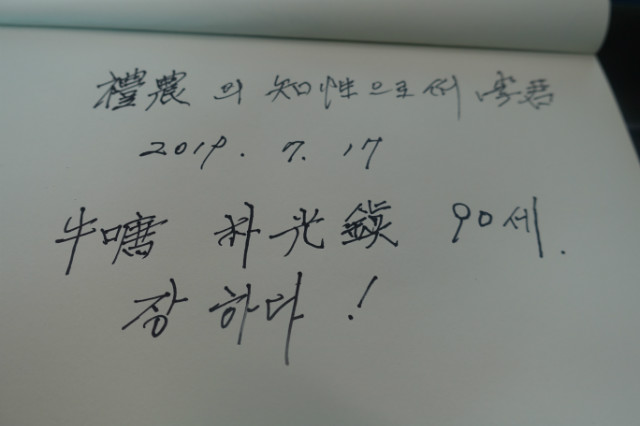 禮農의 知性으로써
2019. 7. 17
牛嚆 朴光鎭 90세.
장하다!